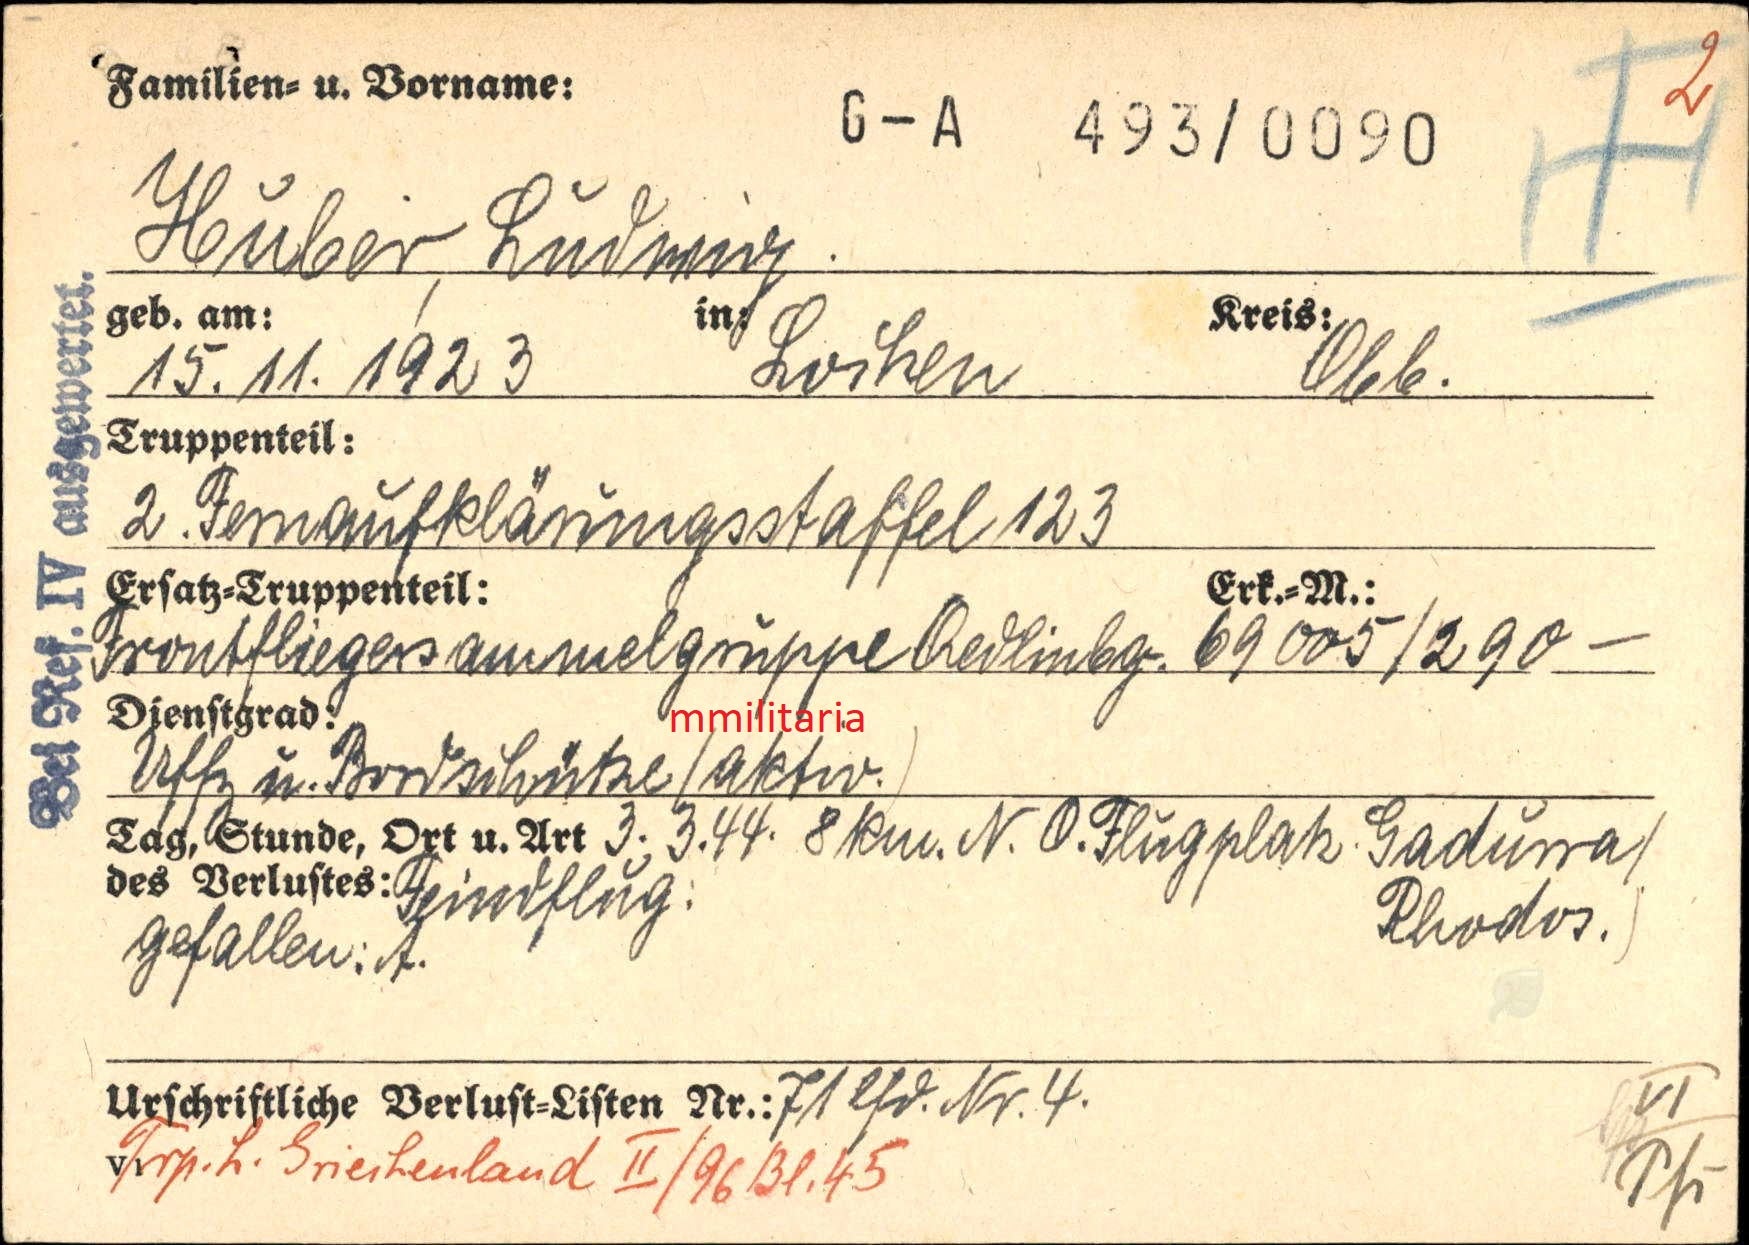 2
Familien- u. Vorname:
G-A 493/0090
Huber, Ludwig.
geb. am: in: Kreis:
15.11.1923 Lochen Obb.
Truppenteil:
2. Fernaufklärungsstaffel 123
Ersatz-Truppenteil: Erk.-M.:
Frontfliegersammelgruppe Qedlinbg. 69005/290 —
Dienstgrad:
mmilitaria
Uffz u. Bordschütze (aktiv.)
Tag, Stunde, Ort u. Art 3. 3.44. 8 km. N. O. Flugplatz Gadurra/
des Verlustes: Feindflug: Rhodos.)
gefallen: A.
Urschriftliche Verlust-Listen Nr.: 71 lfd. Nr. 4.
Trp. L. Griechenland II/96 Bl. 45
VI
Bei Ref. IV ausgewertet.